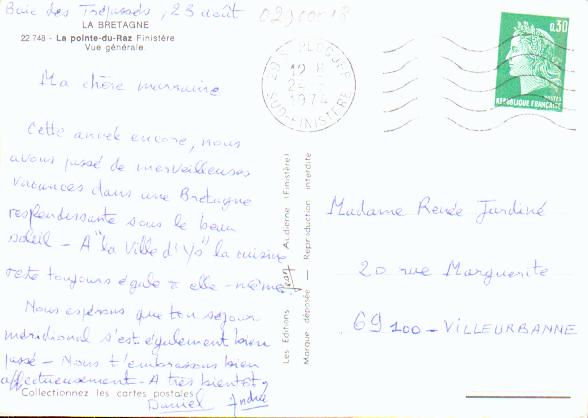 Baie des Trépassés, 23 août
02900018
LA BRETAGNE
22 748 - La pointe-du-Raz Finistère
Vue générale.
Ma chère marraine
Cette année encore, nous
avons passé de merveilleuses
vacances dans une Bretagne
resplendissante sous le beau
soleil - A "la Ville d'Ys" la cuisine
reste toujours égale à elle-même.
Nous espérons que ton séjour
méridional s'est également bien
passé - Nous t'embrassons bien
affectueusement - A très bientôt
Collectionnez les cartes postales
Daniel André
Les Editions Jean Audierne (Finistère)
Marque déposée — Reproduction interdite
29 PLOGOFF
12 H
1974
SUD-FINISTÈRE
0,30
POSTES
REPUBLIQUE FRANÇAISE
Madame Renée Jardiné
20 rue Marguerite
69100 - VILLEURBANNE